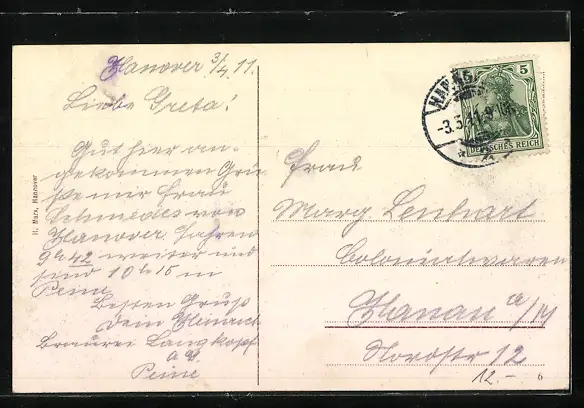 Hanover 3/4.11.
Liebe Greta!
Gut hier an-
gekommen Grü-
ße mir Frau
Schmedes von
Hanover. Fahren
9 h 42 weiter und
sind 10 h 15 in
Peine
Besten Gruß
Dein Heinrich
Brauerei Langkopf
a d
Peine
H. Marx, Hannover
5
DEUTSCHES REICH
-3.5.11.
Frau
Marg Lenhart
Colonialwaren
Hanau a/M
Nordstr 12
12.-
6